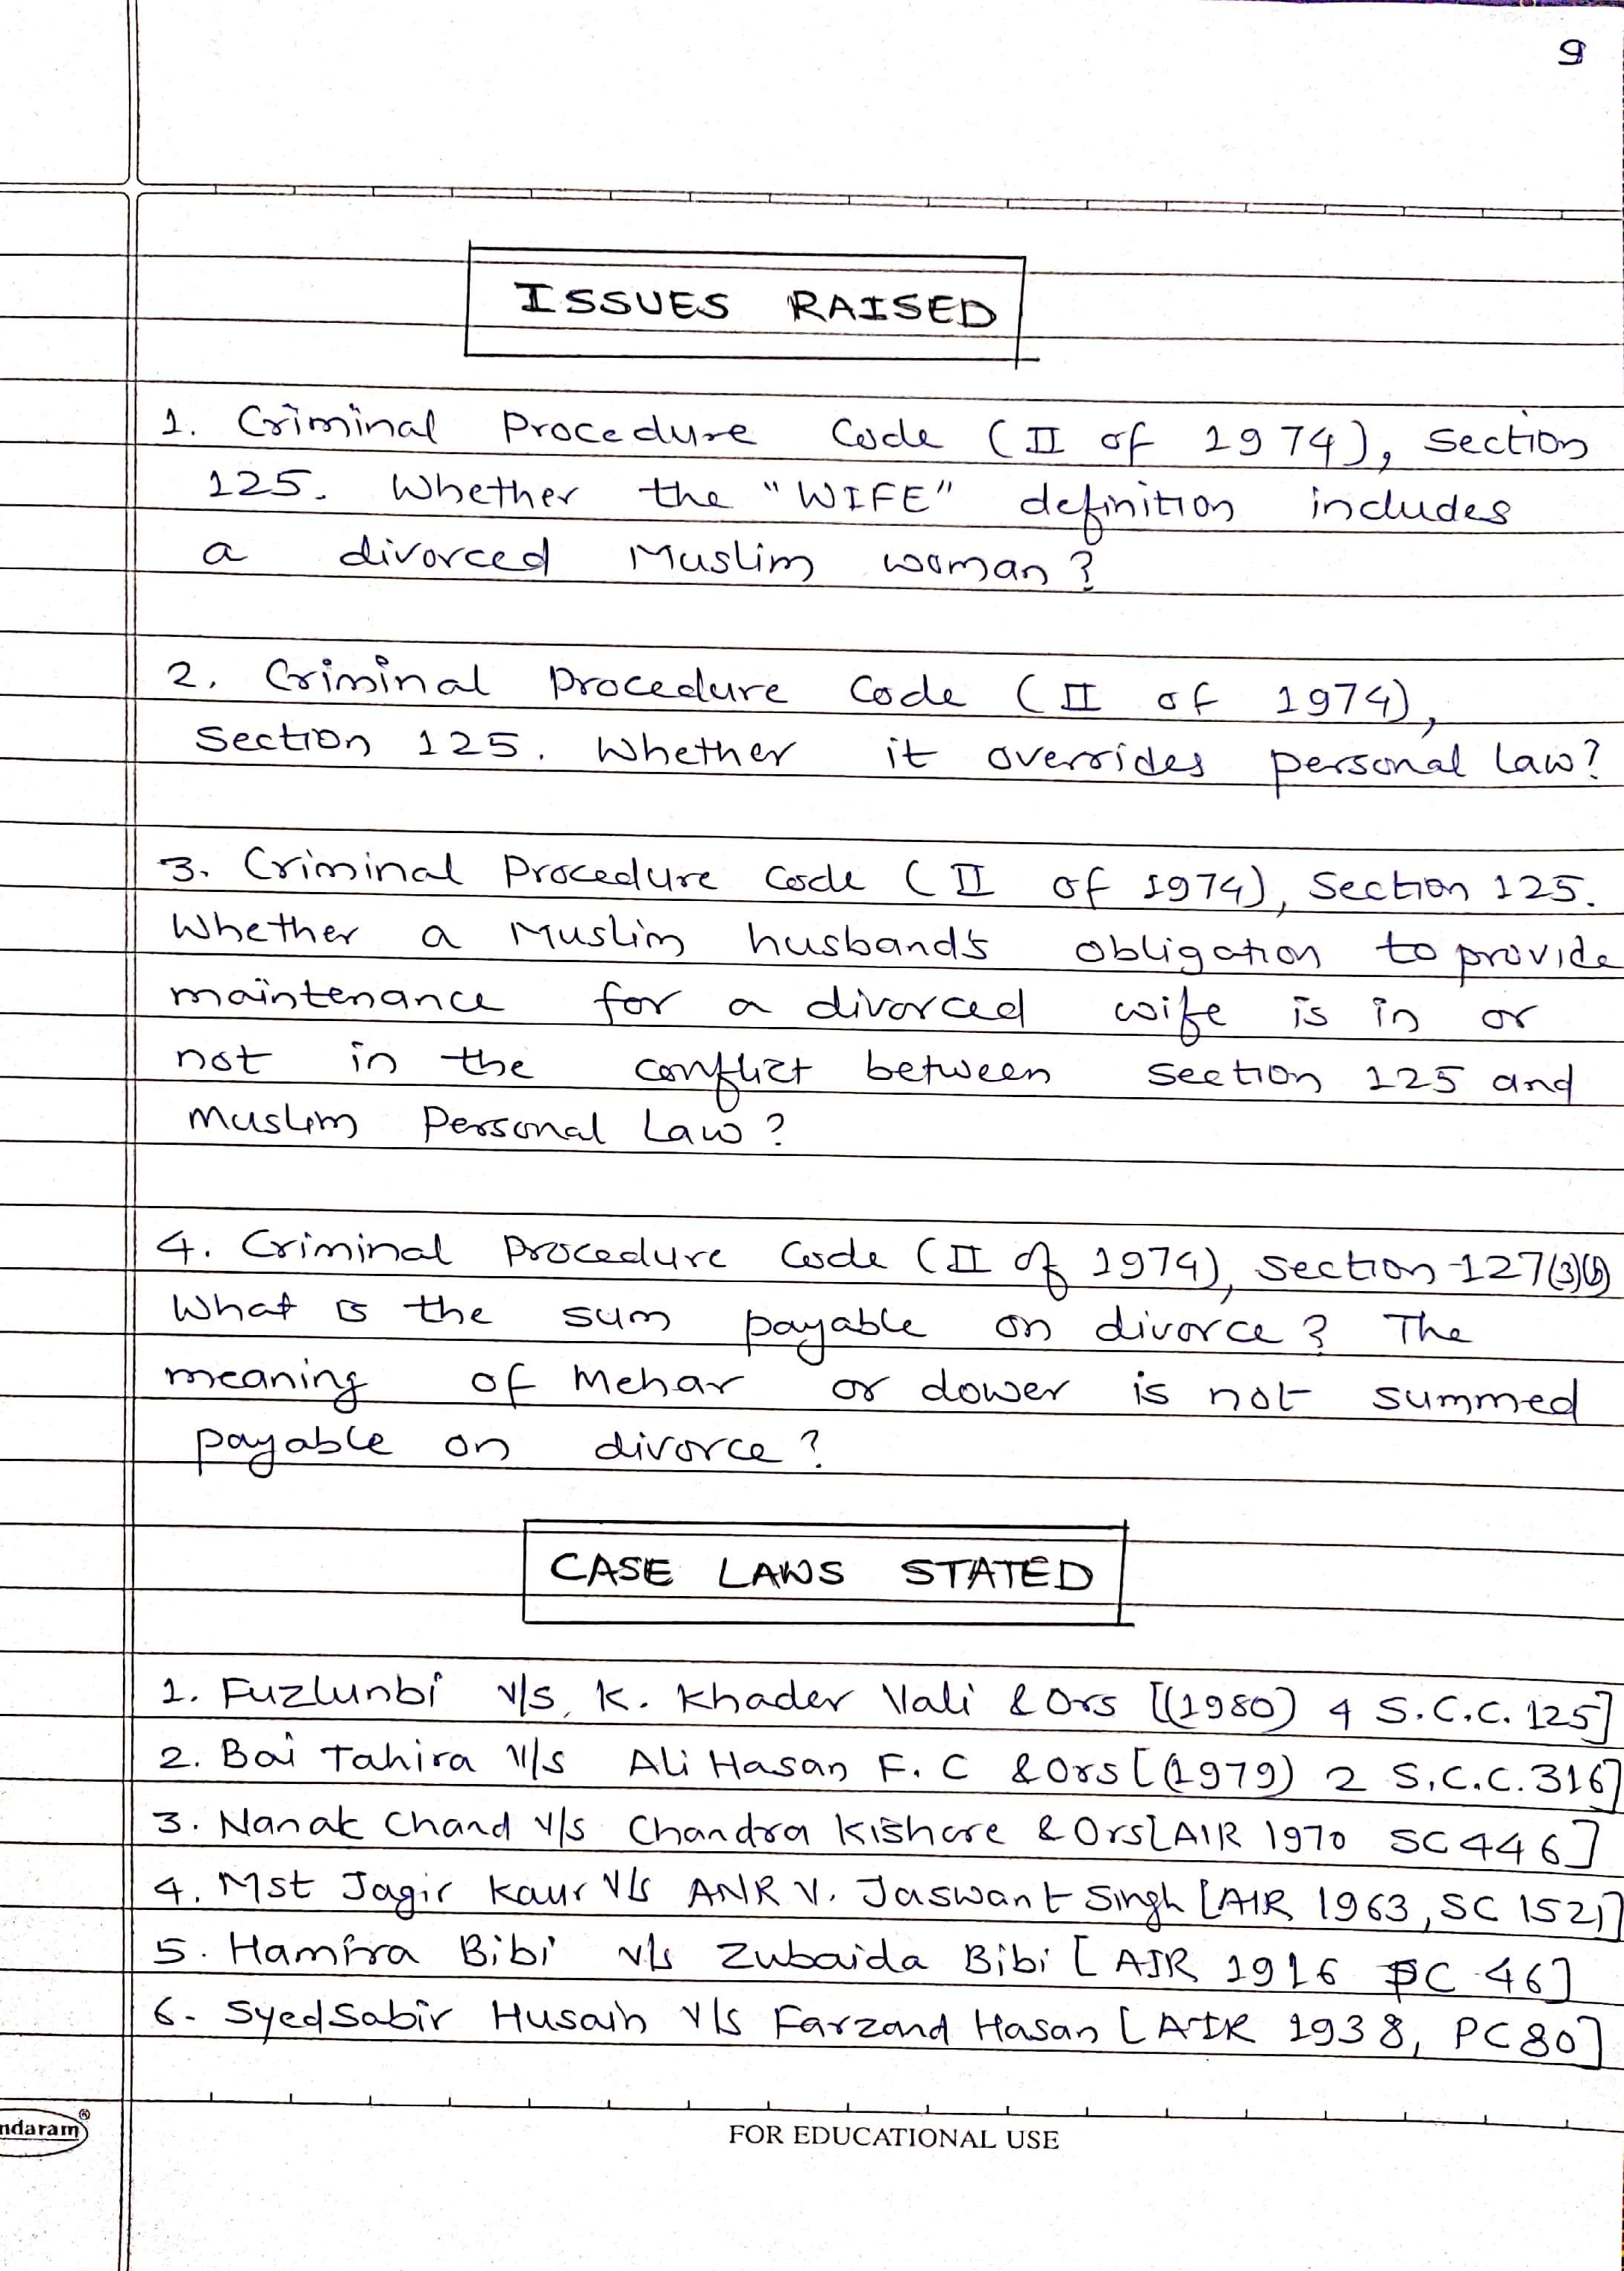 9
ISSUES RAISED
1. Criminal Procedure Code (II of 1974), Section
125. Whether the "WIFE" definition includes
a divorced Muslim woman?
2. Criminal Procedure Code (II of 1974),
Section 125. Whether it overrides personal law?
3. Criminal Procedure Code (II of 1974), Section 125.
Whether a Muslim husband's obligation to provide
maintenance for a divorced wife is in or
not in the conflict between Section 125 and
Muslim Personal Law?
4. Criminal Procedure Code (II of 1974), Section-127(3)(b)
What is the sum payable on divorce? The
meaning of Mehar or dower is not summed
payable on divorce?
CASE LAWS STATED
1. Fuzlunbi v/s, K. Khader Vali & Ors [(1980) 4 S.C.C. 125]
2. Bai Tahira v/s Ali Hasan F. C & Ors [(1979) 2 S.C.C. 316]
3. Nanak Chand v/s Chandra Kishore & Ors [AIR 1970 SC 446]
4. Mst Jagir Kaur v/s ANR V. Jaswant Singh [AIR 1963, SC 1521]
5. Hamira Bibi v/s Zubaida Bibi [AIR 1916 PC 46]
6. Syed Sabir Husain v/s Farzand Hasan [AIR 1938, PC 80]
ndaram®
FOR EDUCATIONAL USE